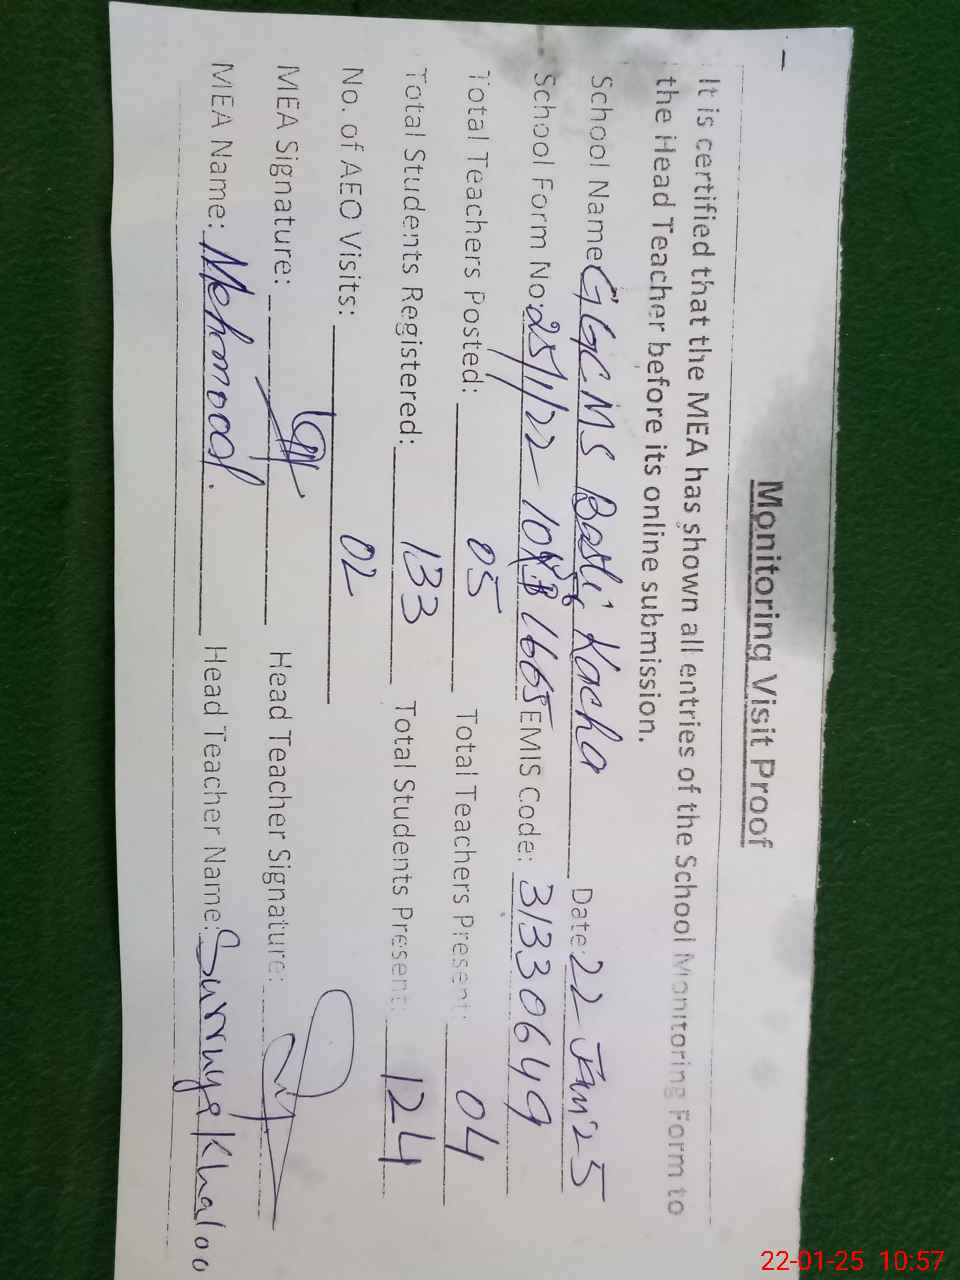 Monitoring Visit Proof
It is certified that the MEA has shown all entries of the School Monitoring Form to
the Head Teacher before its online submission.
School Name GGCMS Basti Kacha Date: 22 Jan'25
School Form No: EMIS Code: 31330649
Total Teachers Posted: 05 Total Teachers Present: 04
Total Students Registered: 133 Total Students Present: 124
No. of AEO Visits: 02
MEA Signature: Head Teacher Signature:
MEA Name: Mehmood. Head Teacher Name:
22-01-25 10:57